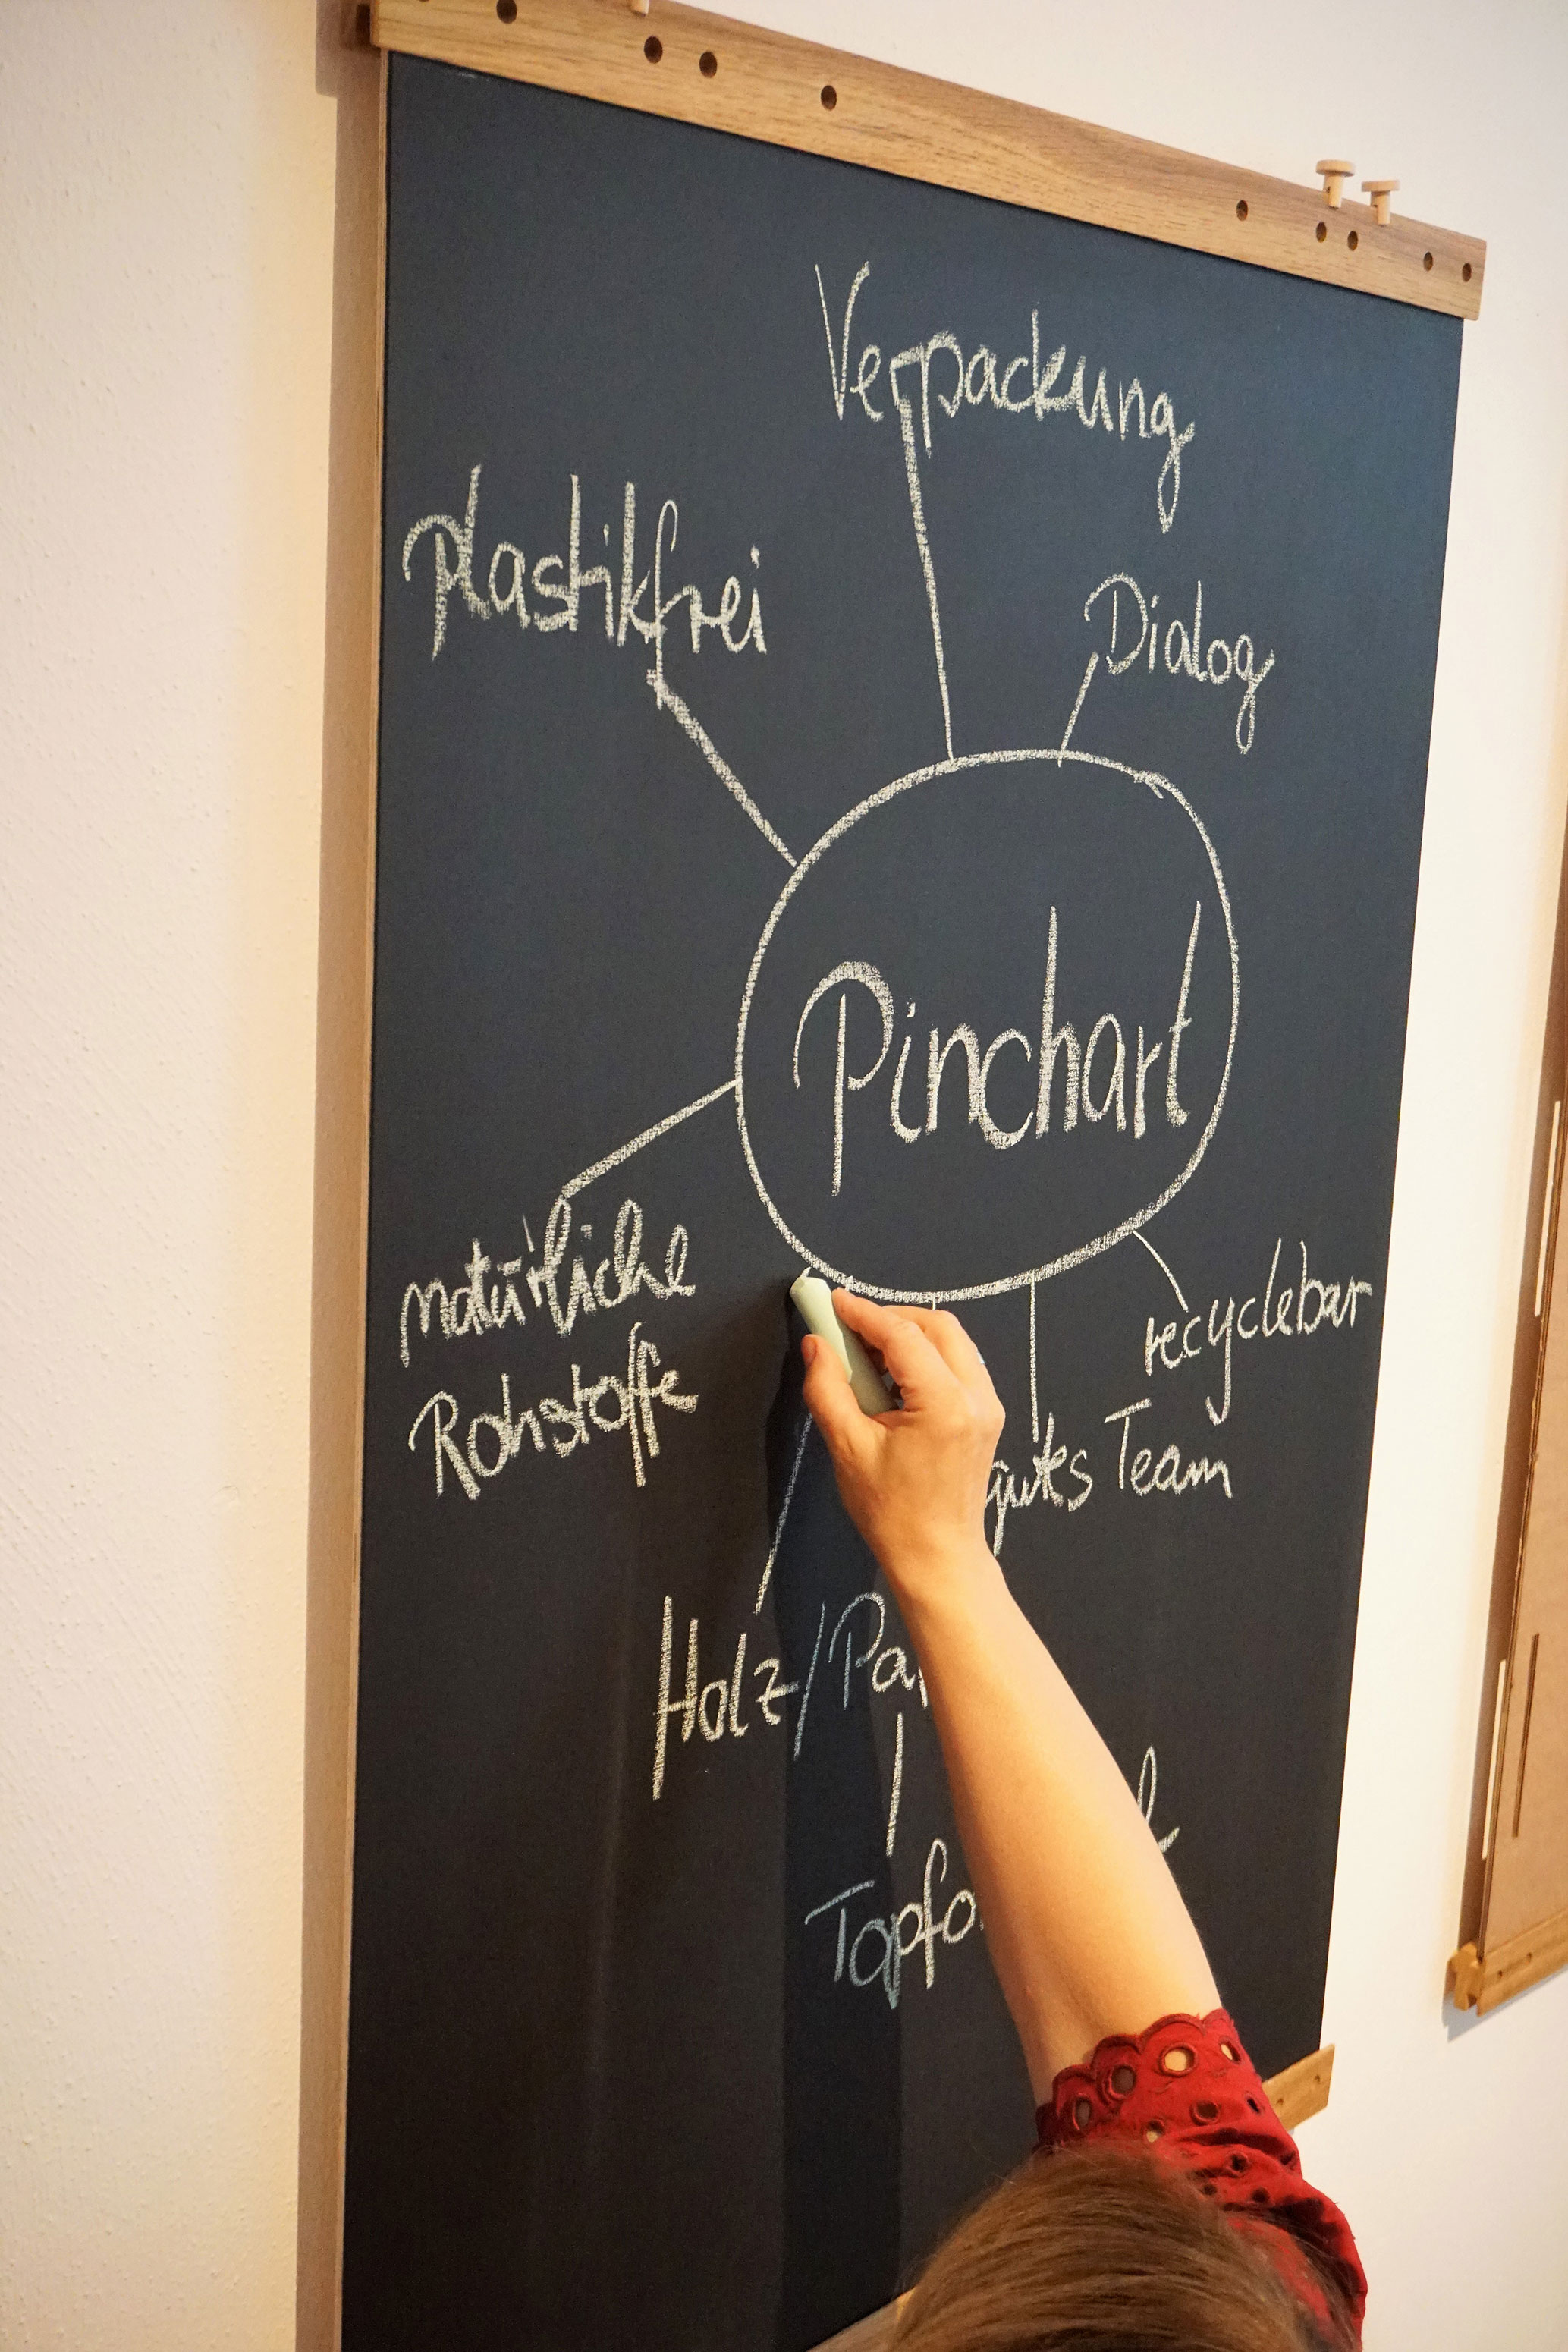 Verpackung
plastikfrei
Dialog
Pinchart
natürliche
Rohstoffe
recyclebar
gutes Team
Holz/